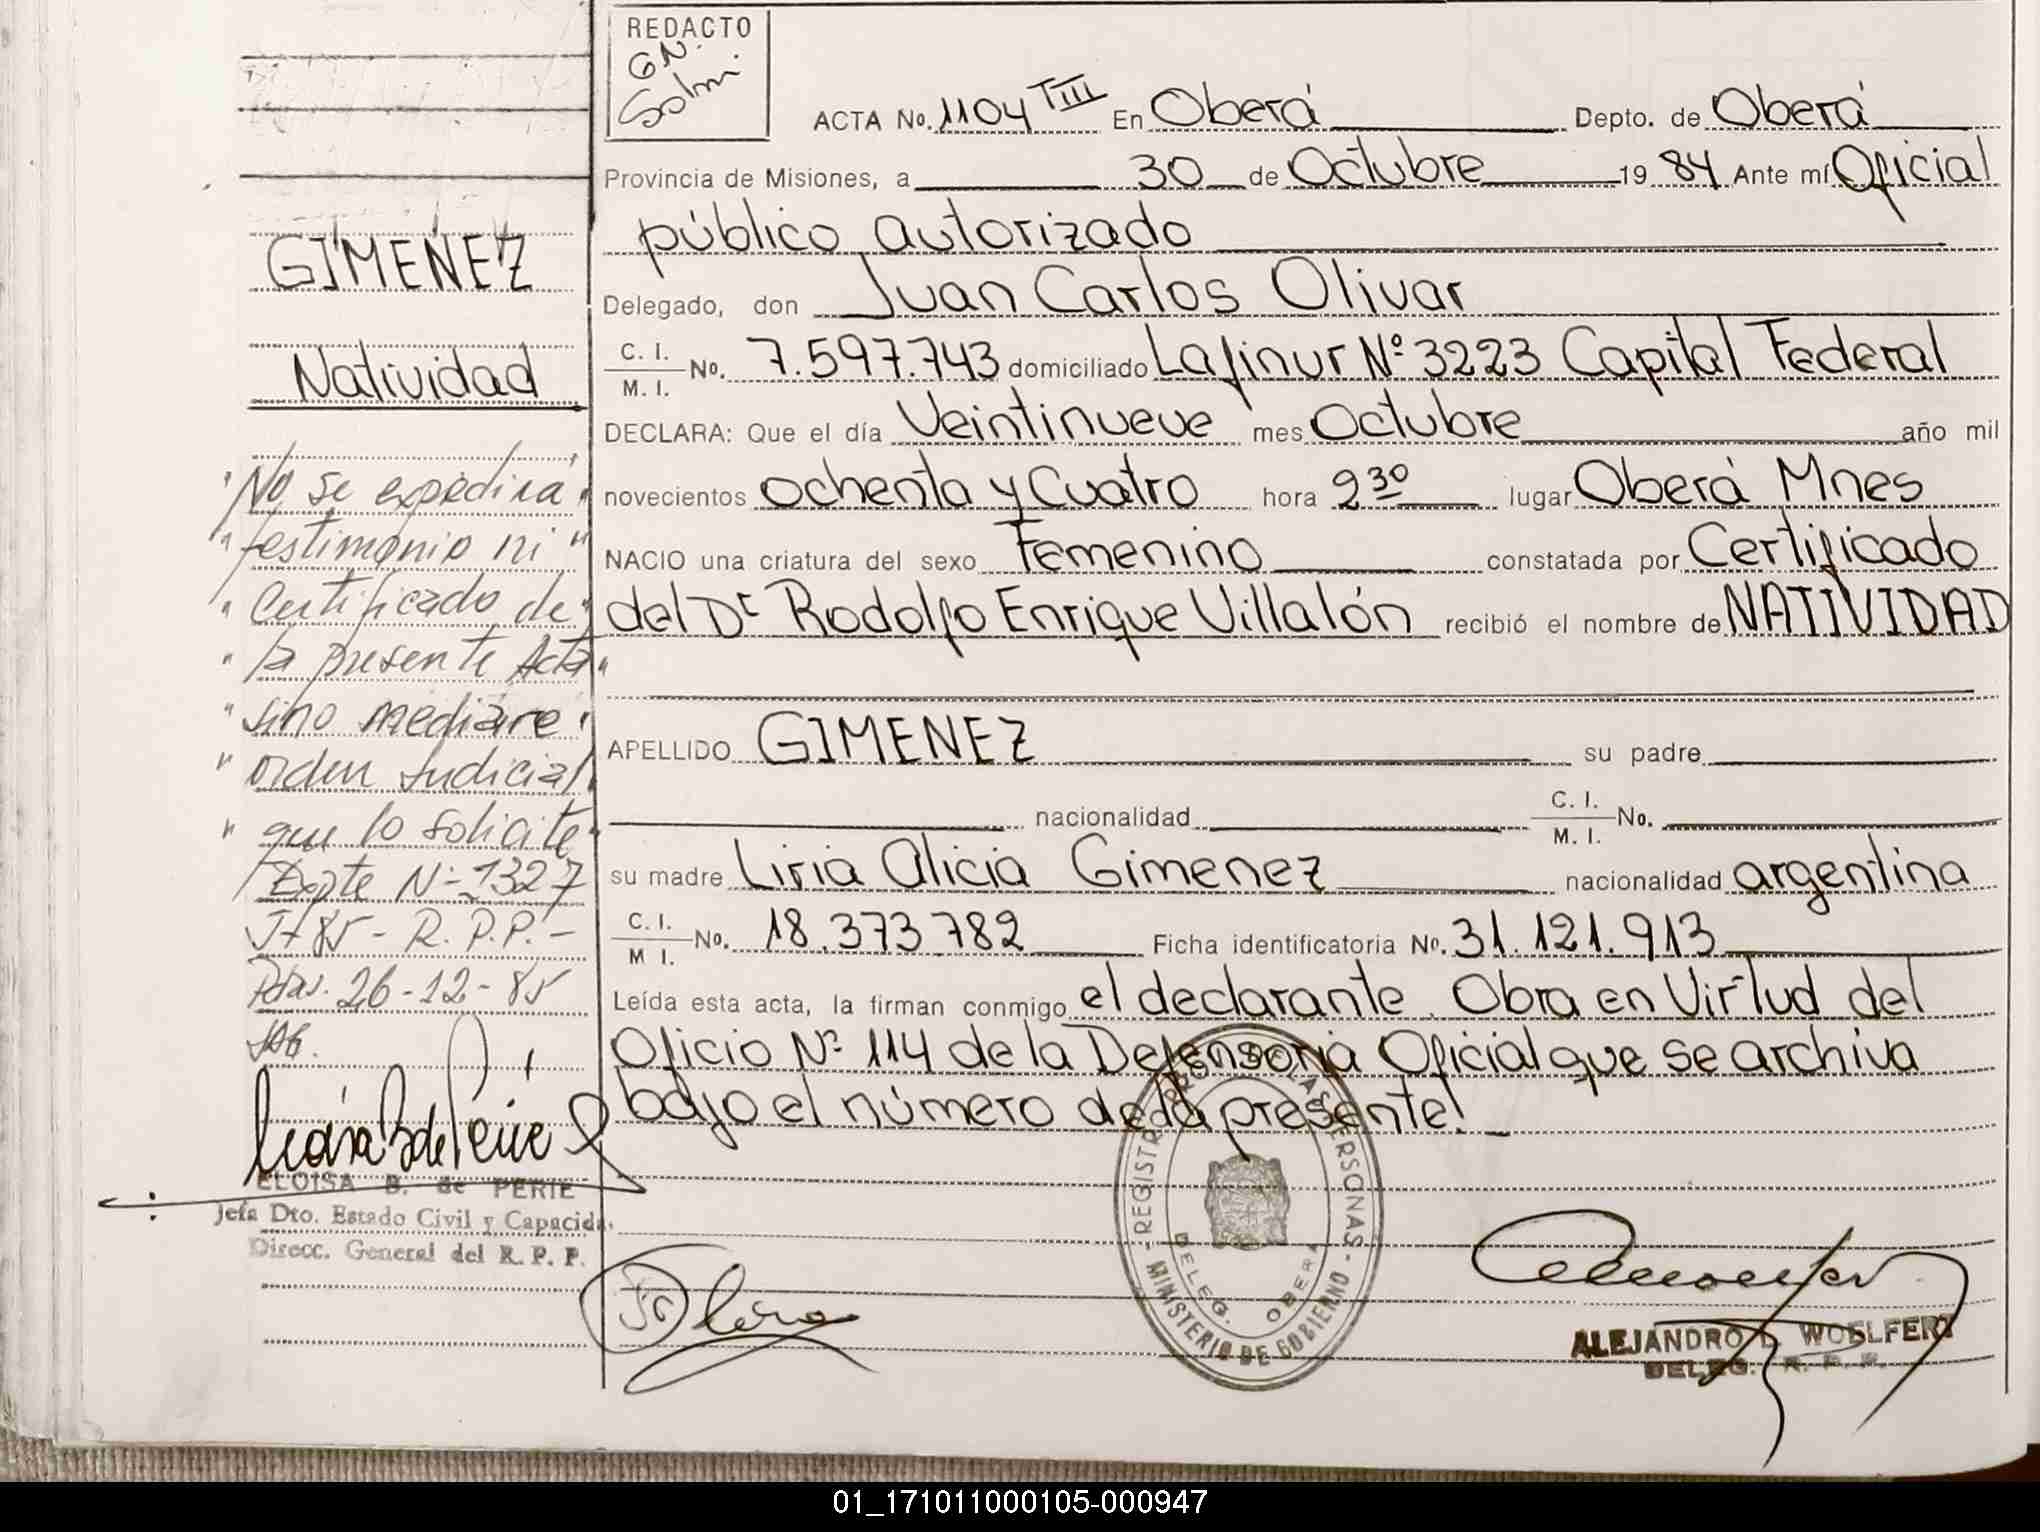 REDACTO
GN.
ACTA No. 1104 TIII En Oberá Depto. de Oberá
Provincia de Misiones, a 30 de Octubre 19 84 Ante mí Oficial
público autorizado
Delegado, don Juan Carlos Olivar
C. I.
M. I. No. 7.597.743 domiciliado Lafinur Nº 3223 Capital Federal
DECLARA: Que el día Veintinueve mes Octubre año mil
novecientos ochenta y Cuatro hora 2 30 lugar Oberá Mnes
NACIO una criatura del sexo Femenino constatada por Certificado
del Dr Rodolfo Enrique Villalón recibió el nombre de NATIVIDAD
APELLIDO GIMENEZ su padre
nacionalidad C. I. M. I. No.
su madre Liria Alicia Gimenez nacionalidad argentina
C. I.
M I. No. 18.373.782 Ficha identificatoria No. 31.121.913
Leída esta acta, la firman conmigo el declarante. Obra en Virtud del
Oficio Nº 114 de la Defensoria Oficial que se archiva
bajo el número de la presente!
GIMENEZ
Natividad
"No se expedirá"
"testimonio ni"
"Certificado de"
"la presente Acta"
"sino mediare"
"orden Judicial
"que lo solicite"
Expte Nº 1327
J+85- R.P.P.-
Pdas. 26-12-85
ELOISA B. de PERIE
Jefa Dto. Estado Civil y Capacid.
Direcc. General del R. P. P.
REGISTRO PROV. DE LAS PERSONAS
DELEG. OBERA
MINISTERIO DE GOBIERNO
ALEJANDRO L WOELFERT
DELEG. R. P. P.
01_171011000105-000947